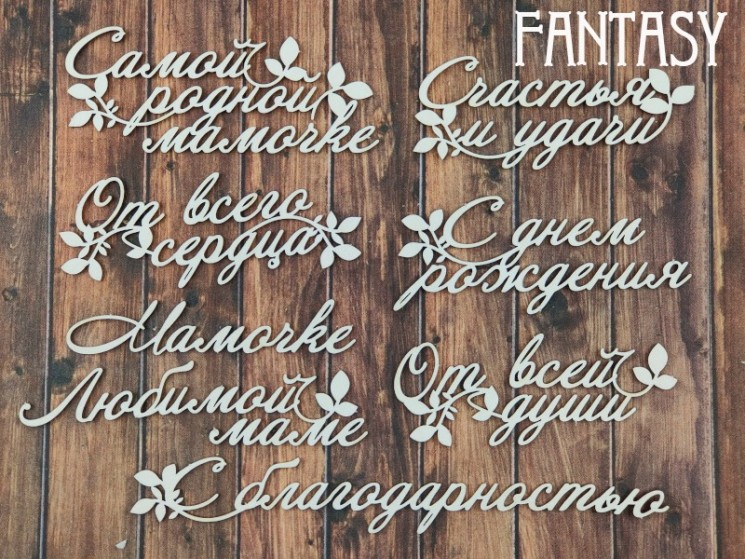 FANTASY
Самой
родной
мамочке
Счастья
и удачи
От всего
сердца
С днем
рождения
Мамочке
Любимой
маме
От всей
души
С благодарностью